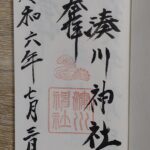 奉拝
湊川神社
令和六年七月三日
湊川
神社